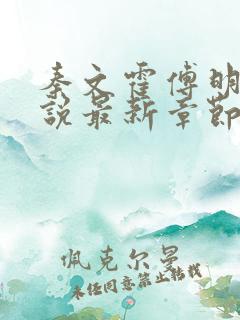 秦文霍傅明
说最新章節
佩克尔曼
未经同意禁止转载